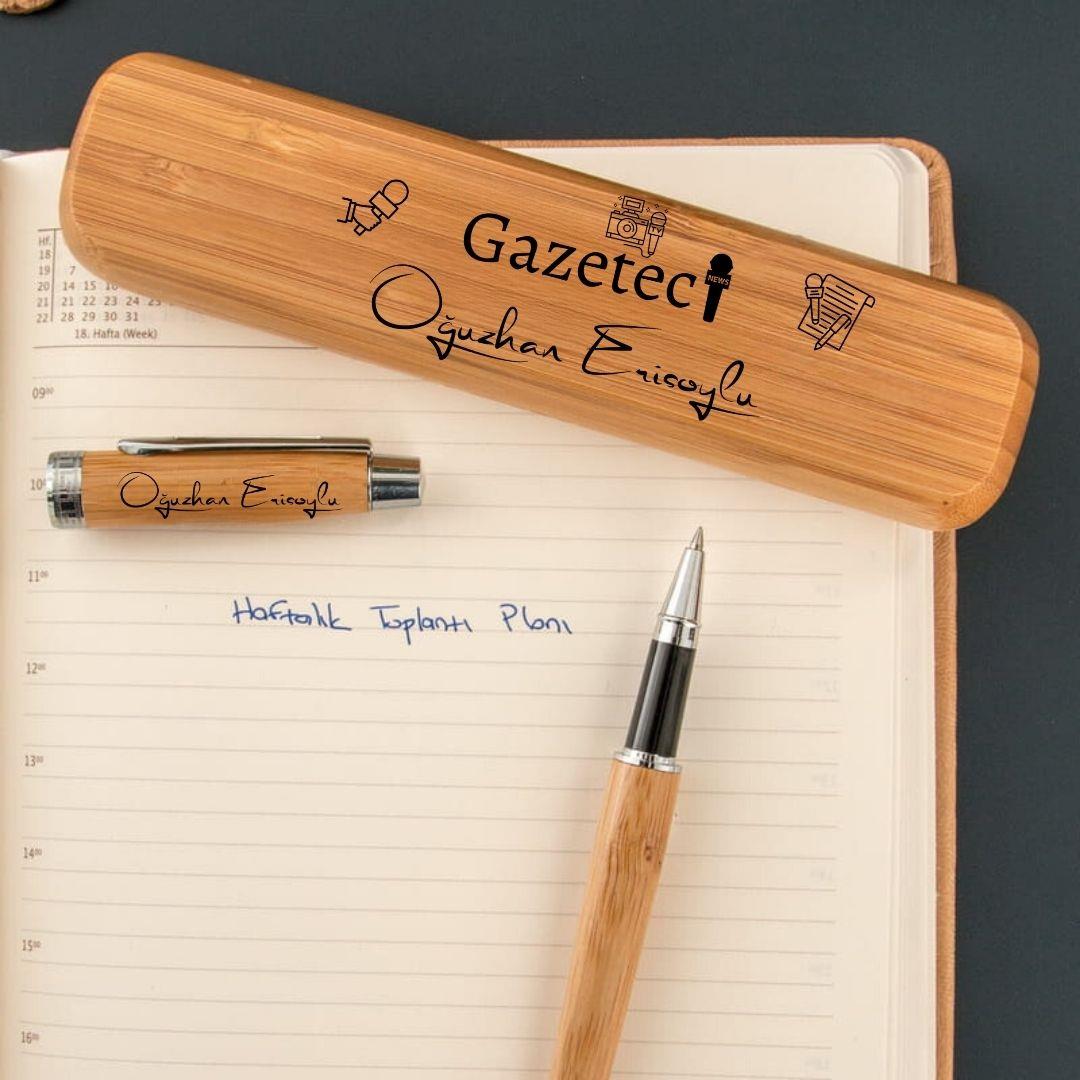 Gazeteci
NEWS
Oğuzhan Erisoylu
Hf.
18
19 7
20 14 15 16
21 21 22 23 24 25
22 28 29 30 31
18. Hafta (Week)
09⁰⁰
Oğuzhan Erisoylu
10
11⁰⁰
Haftalık Toplantı Planı
12⁰⁰
13⁰⁰
14⁰⁰
15⁰⁰
16⁰⁰